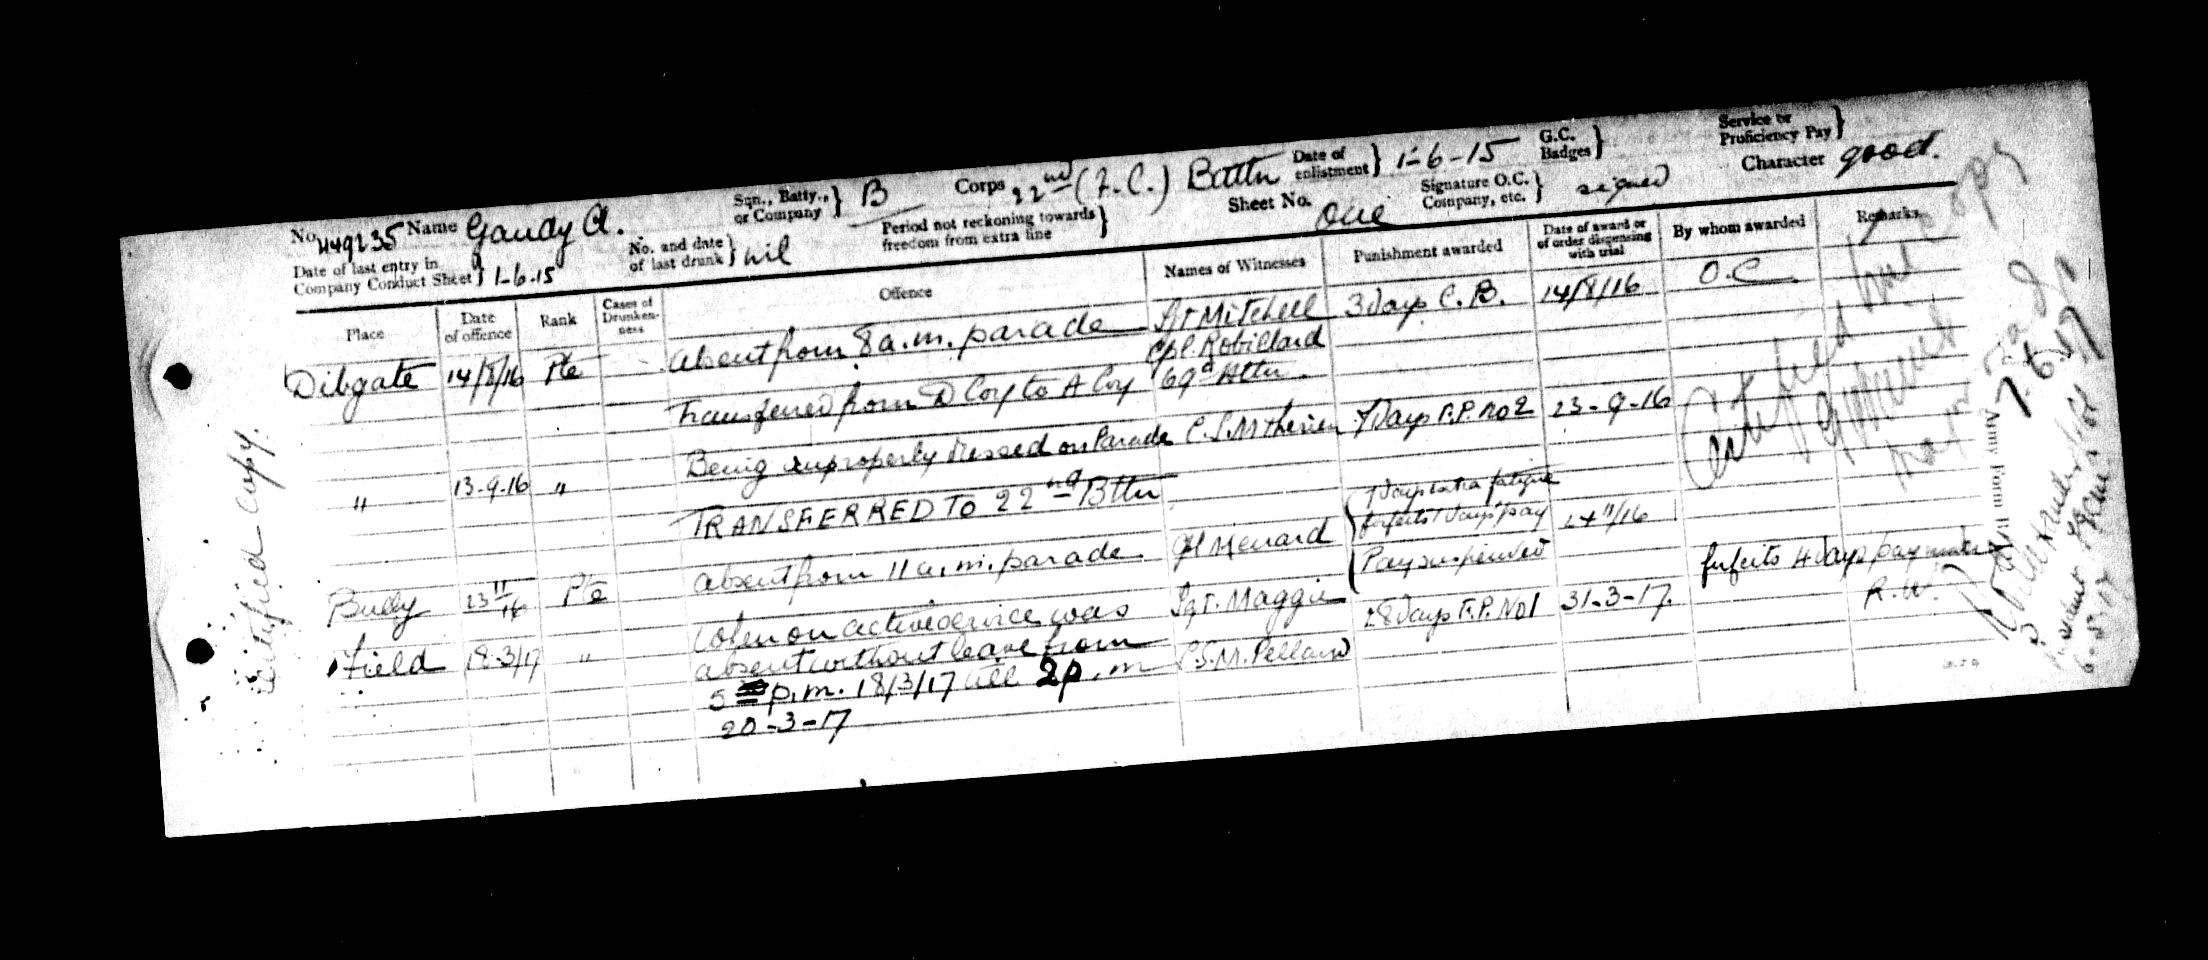 No. 449235 Name Gaudy A. Sqn., Batty., or Company } B Corps 22nd (F.C.) Battn Date of enlistment } 1-6-15 G.C. Badges } Service or Proficiency Pay }
Date of last entry in Company Conduct Sheet } 1-6-15 No. and date of last drunk } nil Period not reckoning towards freedom from extra line } Sheet No. One Signature O.C. Company, etc. } signed Character good.
Place Date of offence Rank Cases of Drunkenness Offence Names of Witnesses Punishment awarded Date of award or of order dispensing with trial By whom awarded Remarks
Dibgate 14/8/16 Pte Absent from 8 a.m. parade Mitchell 3 Days C.B. 14/8/16 O.C.
Cpl. Robillard
Transferred from D Coy to A Coy 69th Bttn.
" 13-9-16 " Being improperly dressed on Parade C.S.M Therien 7 Days F.P. No 2 23-9-16
TRANSFERRED TO 22nd Bttn
Bully 23 11/16 Pte Absent from 11 a.m. parade Menard { 7 Days extra fatigue
forfeits 1 days pay 24 11/16
Pay suspended
Field 18-3/17 " When on active service was Sgt. Maggie 28 Days F.P. No 1 31-3-17. forfeits 4 days pay under R.W.
absent without leave from C.S.M. Pelland
5 p.m. 18/3/17 till 2 p.m
20-3-17
Certified copy.
Certified true copy
Army Form B.